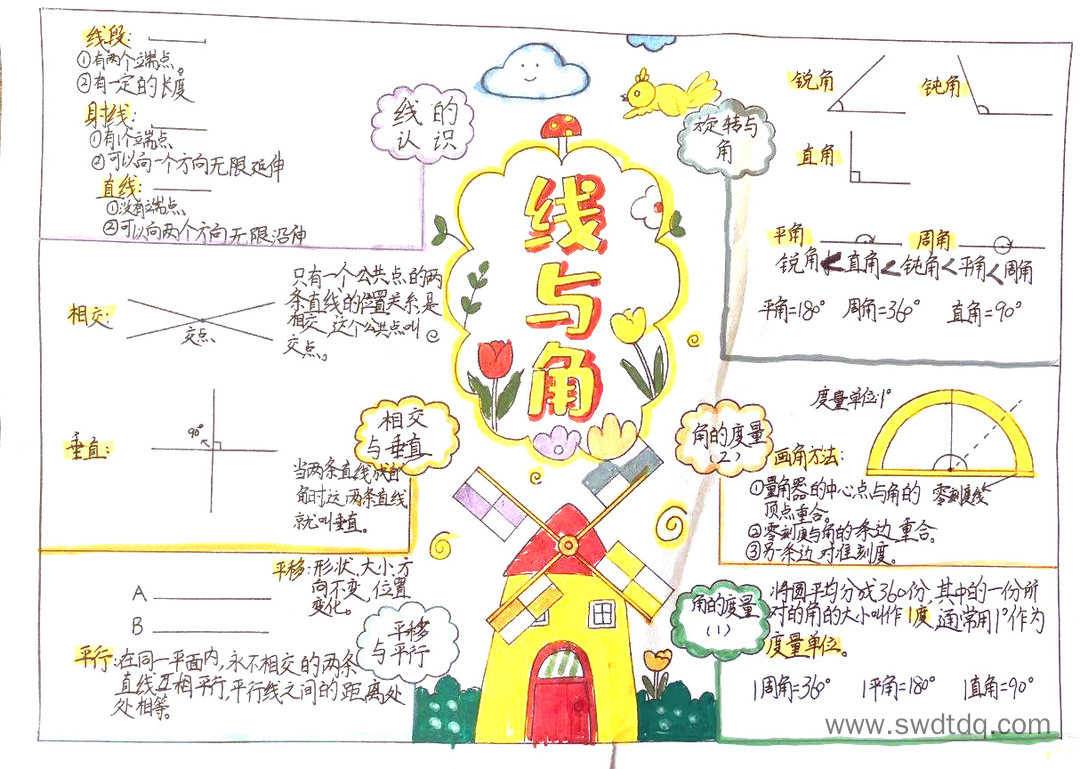 线与角
线的
认识
线段:
①有两个端点。
②有一定的长度
射线:
①有1个端点
②可以向一个方向无限延伸
直线:
①没有端点
②可以向两个方向无限沿伸
相交:
交点
只有一个公共点的两
条直线的位置关系是
相交,这个公共点叫
交点。
相交
与垂直
垂直:
90°
当两条直线成直
角时这两条直线
就叫垂直。
平移与平行
平移:形状、大小、方
向不变,位置
变化。
A
B
平行:在同一平面内,永不相交的两条
直线互相平行,平行线之间的距离处
处相等。
旋转与
角
锐角
钝角
直角
平角
周角
锐角<直角<钝角<平角<周角
平角=180° 周角=360° 直角=90°
角的度量
(2)
度量单位:1°
画角方法:
①量角器的中心点与角的
顶点重合。
零刻度线
②零刻度与角的一条边重合。
③另一条边对准刻度。
角的度量
(1)
将圆平均分成360份,其中的一份所
对的角的大小叫作1度,通常用1°作为
度量单位。
1周角=360° 1平角=180° 1直角=90°
www.swdtdq.com